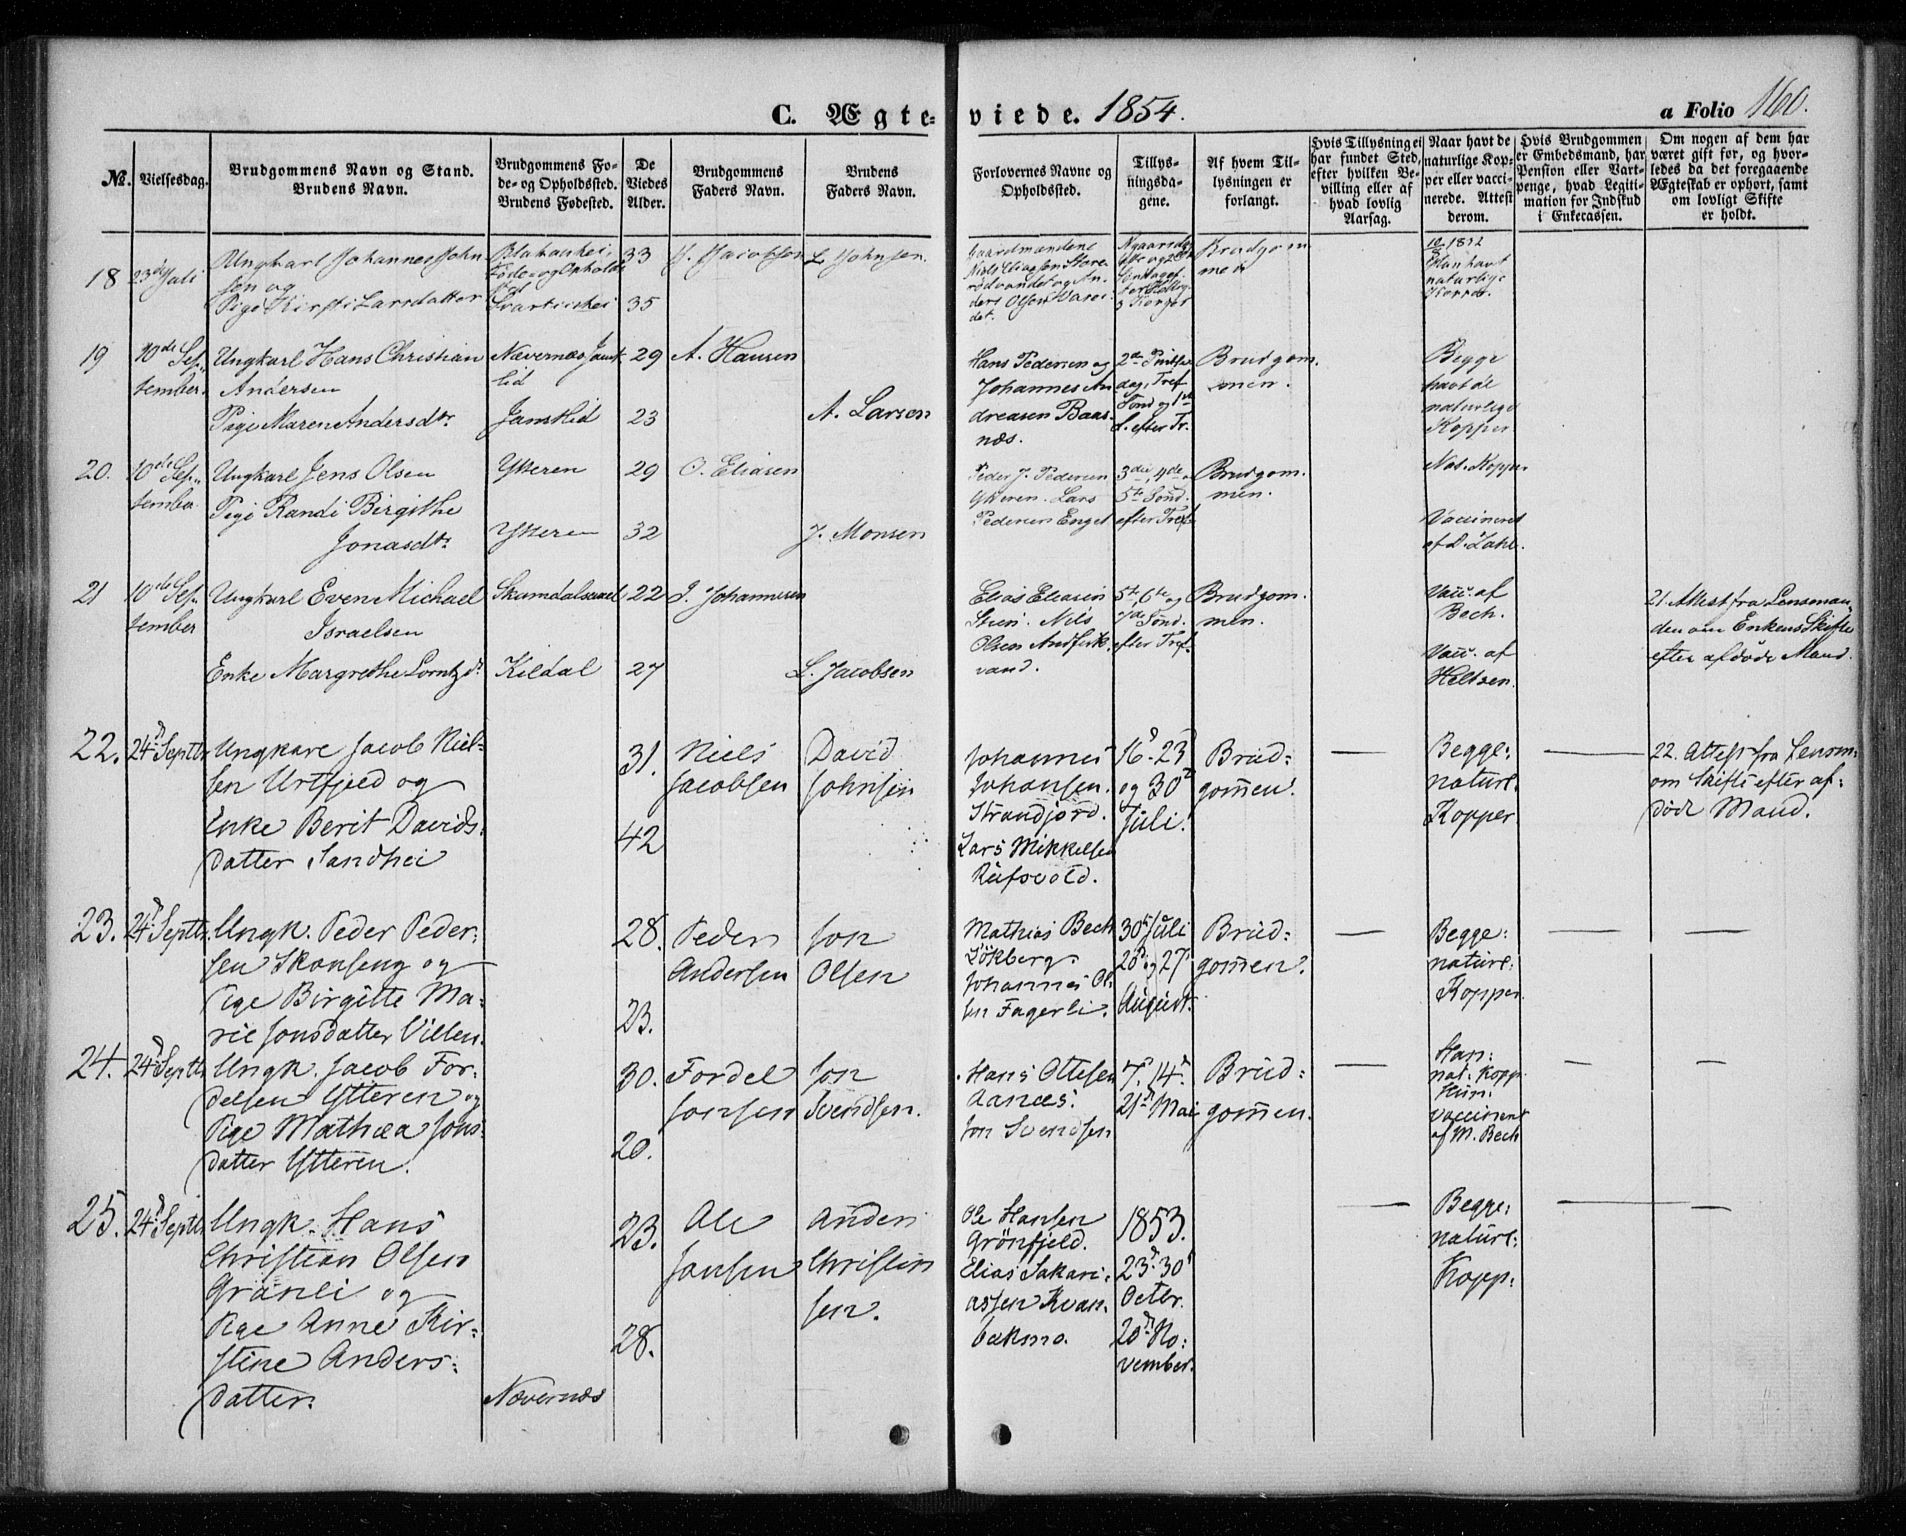 C. Ægte= viede. 1854. a Folio 160.
№.
Vielsesdag.
Brudgommens Navn og Stand.
Brudens Navn.
Brudgommens Fo-
de- og Opholdssted.
Brudens Fødested.
De
Viedes
Alder.
Brudgommens
Faders Navn.
Brudens
Faders Navn.
Forlovernes Navne og
Opholdssted.
Tillys-
ningsda-
gene.
Af hvem Til-
lysningen er
forlangt.
Hvis Tillysning ei
har fundet Sted,
efter hvilken Be-
villing eller af
hvad lovlig
Aarsag.
Naar havt de
naturlige Kop-
per eller vacci-
nerede. Attest
derom.
Hvis Brudgommen
er Embedsmand, har
Pension eller Vart-
penge, hvad Legiti-
mation for Indskud
i Enkecassen.
Om nogen af dem har
været gift før, og hvor-
ledes da det foregaaende
Ægteskab er ophørt, samt
om lovligt Skifte
er holdt.
18
23de Juli
Ungkarl Johannes John
sen og
Pige Kirsti Larsdatter
Føde- og Opholds
sted
33
35
Jacobsen
L. Johnsen
Gaardmændene
Niels Eliassen
Anders Olsen
det.
Brudgom
men
1832
Han havt
naturlige
Kopper.
19
10de Sep„
tember.
Ungkarl Hans Christian
Andersen
Pige Maren Andersdtr.
Nævernæs Jamt
lid
Jamtlid
29
23
A. Hansen
A. Larsen
Hans Pedersen og
Johannes An
dreasen Baas-
næs.
2den Pintse
dag, Tref
Sønd og 1ste
S. efter Tr.
Brudgom.
men.
Begge
havt de
naturlige
Kopper
20.
10de Sep„
tember
Ungkarl Jens Olsen
Pige Randi Birgithe
Jonasdtr.
Ytteren
Ytteren
29
32
O. Eliasen
J. Monsen
Peder J. Pedersen
Ytteren. Lars
Pedersen Enget
3die, 4de o
5te Sønd.
efter Tref
Brudgom.
men.
Nat. Kopper
Vaccineret
af D. Zahl.
21
10de Sep.
tember
Ungkarl Even Michael
Israelsen
Enke Margrethe Lorntzdr.
Kildal
22
27
I. Johannesen
L. Jacobsen
Elias Eliasen
Steen. Nils
Olsen Andfisk.
vand.
5te, 6te og
7de Sønd.
efter Tref
Brudgom.
men.
Vacc. af
Bech.
Vacc. af
Heltzen.
21. Attest fra Lensman„
den om Enkens Skifte
efter afdøde Mand.
22.
24d Septbr
Ungkarl Jacob Niel-
sen Urtfjeld og
Enke Berit Davids-
datter Sandhei
31.
42
Niels
Jacobsen
David
Johnsen
Johannes
Johansen.
Strandjord.
Lars Mikkelsen
16d 23d
og 30d
Juli.
Brud=
gommen.
Begge:
naturl.
Kopper
22. Attest fra Lensm=
om Skifte efter af=
døde Mand.
23.
24d Septbr.
Ungk. Peder Peder=
sen Skonseng og
Pige Birgitte Ma=
rie Jonsdatter Villen.
28.
23.
Peder
Andersen
Jon
Olsen
Mathias Bech
Løkberg
Johannes Ol
sen Fagerli.
30d Juli
20d og 27d
August.
Brud=
gommen.
Begge:
naturl:
Kopper.
24.
24d Septbr
Ungk. Jacob For=
delsen Ytteren og
Pige Mathea Jons=
datter Ytteren.
30.
20.
Fordel
Jonsen
Jon
Svendsen.
Hans Ottesen
Aanæs.
Jon Svendsen
7d. 14d.
21d Mai
Brud=
gommen.
Han:
nat. Kopp
Hun:
vaccineret
af M. Bech
25.
24d Septbr
Ungk. Hans
Christian Olsen
Grånli og
Pige Anne Kir=
stine Anders=
datter.
Nævernæs
23.
28.
Ole
Jonsen
Anders
Christen
sen.
Ole Hansen
Grönfjeld.
Elias Sakari=
assen Kvan-
bakmo.
1853.
23d. 30d
Octbr.
20d No=
vember.
Begge:
naturl:
Kopp: